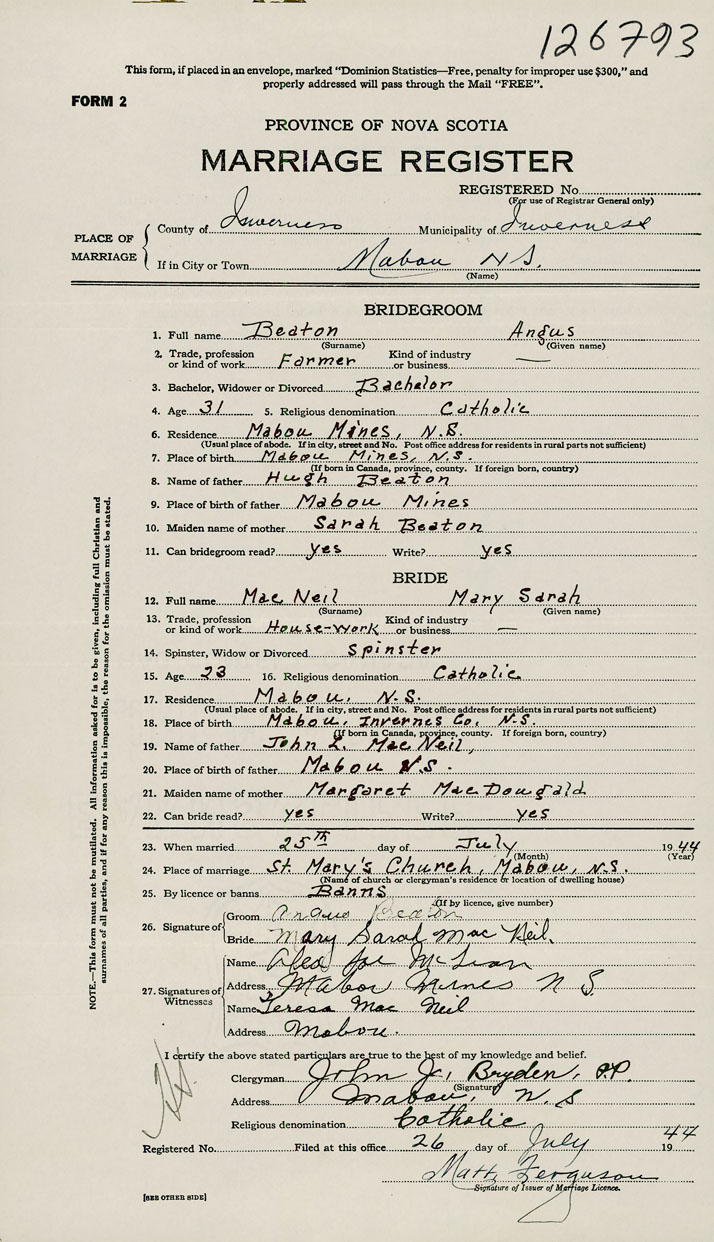 126793
This form, if placed in an envelope, marked "Dominion Statistics—Free, penalty for improper use $300," and
properly addressed will pass through the Mail "FREE".
FORM 2
PROVINCE OF NOVA SCOTIA
MARRIAGE REGISTER
REGISTERED No.
(For use of Registrar General only)
PLACE OF MARRIAGE
County of Inverness Municipality of Inverness
If in City or Town Mabou N S.
(Name)
BRIDEGROOM
1. Full name Beaton Angus
(Surname) (Given name)
2. Trade, profession or kind of work Farmer Kind of industry or business —
3. Bachelor, Widower or Divorced Bachelor
4. Age 31 5. Religious denomination Catholic
6. Residence Mabou Mines, N.S.
(Usual place of abode. If in city, street and No. Post office address for residents in rural parts not sufficient)
7. Place of birth Mabou Mines, N.S.
(If born in Canada, province, county. If foreign born, country)
8. Name of father Hugh Beaton
9. Place of birth of father Mabou Mines
10. Maiden name of mother Sarah Beaton
11. Can bridegroom read? yes Write? yes
BRIDE
12. Full name Mac Neil Mary Sarah
(Surname) (Given name)
13. Trade, profession or kind of work House-work Kind of industry or business —
14. Spinster, Widow or Divorced Spinster
15. Age 23 16. Religious denomination Catholic
17. Residence Mabou, N.S.
(Usual place of abode. If in city, street and No. Post office address for residents in rural parts not sufficient)
18. Place of birth Mabou, Invernes Co, N.S.
(If born in Canada, province, county. If foreign born, country)
19. Name of father John L. Mac Neil,
20. Place of birth of father Mabou N.S.
21. Maiden name of mother Margaret Mac Dougald
22. Can bride read? yes Write? yes
23. When married 25th day of July 1944
(Month) (Year)
24. Place of marriage St. Mary's Church, Mabou, N.S.
(Name of church or clergyman's residence or location of dwelling house)
25. By licence or banns Banns
(If by licence, give number)
26. Signature of
Groom Angus Beaton
Bride Mary Sarah Mac Neil.
27. Signatures of Witnesses
Name Alex Joe McLean
Address Mabou Mines N S
Name Teresa Mac Neil
Address Mabou.
I certify the above stated particulars are true to the best of my knowledge and belief.
Clergyman John J. Bryden, P.P.
(Signature)
Address Mabou, N. S
Religious denomination Catholic
Registered No. Filed at this office 26 day of July 1944
Matt Ferguson
Signature of Issuer of Marriage Licence.
[SEE OTHER SIDE]
NOTE.—This form must not be mutilated. All information asked for is to be given, including full Christian and
surnames of all parties, and if for any reason this is impossible, the reason for the omission must be stated.